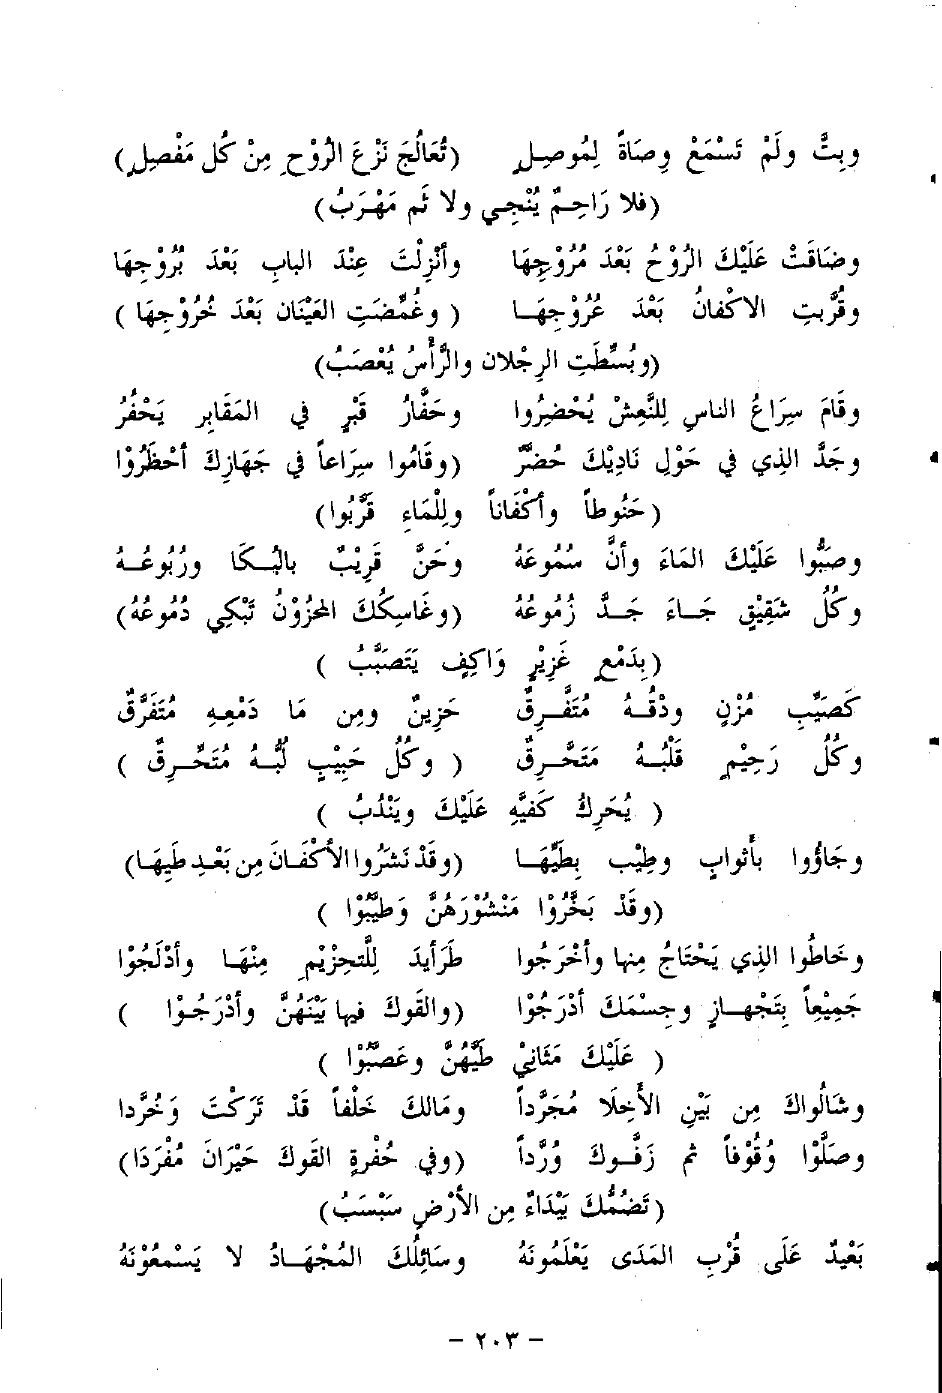 وبِتَّ ولَمْ تَسْمَعْ وِصَاةً لِمُوصِلٍ (تُعَالُجَ نَزْعَ الرُّوْحِ مِنْ كُل مَفْصِلِ)
(فلا رَاحِمٌ يُنْجِي ولا ثَم مَهْرَبُ)
وضَاقَتْ عَلَيْكَ الرُوْحُ بَعْدَ مُرُوْجِهَا وأنْزِلْتَ عِنْدَ البابِ بَعْدَ بُرُوْجِهَا
وقُرَّبتِ الاكْفانُ بَعْدَ عُرُوْجِهَا ( وغُمَّضَتِ العَيْنَان بَعْدَ خُرُوْجِهَا )
(وبُسِّطَتِ الرِجْلان والرَّأْسُ يُعْصَبُ)
وقَامَ سِرَاعُ الناسِ لِلنَّعِشْ يُحْضِرُوا وحَفَّارُ قَبْرٍ في المَقَابِر يَحْفُرُ
وجَدَّ الذِي في حَوْلِ نَادِيْكَ حُضرَّ (وقَامُوا سِرَاعاً في جَهَازِكَ أحْظَرُوْا
(حَنُوطاً وأكْفَاناً ولِلْمَاءِ قَرَّبُوا)
وصَبُّوا عَلَيْكَ المَاءَ وأنَّ سُمُوعَهُ وحَنَّ قَرِيْبٌ بالبُكَا ورُبُوعُهُ
وكُلُ شَقِيْقٍ جَاءَ جَدَّ زُمُوعُهُ (وغَاسِكُكَ المحزُوْنُ تَبْكِي دُمُوعُهُ)
(بِدَمْعٍ غَزِيْرٍ وَاكِفٍ يَتَصَبَّبُ )
كَصَيِّبِ مُزْنٍ ودْقُهُ مُتَفَّرِقٌ حَزِينٌ ومِن مَا دَمْعِهِ مُتَفَرَّقٌ
وكُلُ رَحِيْمٍ قَلْبُهُ مَتَحَّرِقٌ ( وكُلُ حَبِيْبٍ لُبُّهُ مُتَحَّرِقٌ )
( يُحَرِكُ كَفيَّهِ عَلَيْكَ ويَنْدُبُ )
وجَاؤُوا بأَثوابٍ وطِيْب بِطَيِّهَا (وقَدْ نَشَرُوا الأكْفَانَ مِن بَعْدِ طَيِهَا)
(وقَدْ بَخَّرُوْا مَنْشُوْرَهُنَّ وَطيَّبُوْا )
وخَاطُوا الذِي يَحْتَاجُ مِنها وأخْرَجُوا طَرَأيدَ لِلَّتحِزْيْمِ مِنْهَا وأدْلَجُوْا
جَمِيْعاً بِتَجْهازٍ وجِسْمَكَ أدْرَجُوْا (والقَوكَ فيها بَيْنَهُنَّ وأدْرَجُوْا )
( عَلَيْكَ مَثَانِيْ طَيَّهُنَّ وعَصَّبُوْا )
وشَالُواكَ مِن بَيْنِ الأَخِلَا مُجَرَّداً ومَالكَ خَلْفاً قَدْ تَرَكْتَ وَخُرَّدا
وصَلَّوْا وُقُوْفاً ثم زَفَّوكَ وُرَّداً (وفي حُفْرةٍ القَوكَ حَيْرَانَ مُفْرَدَا)
(تَضُمُّكَ بَيْدَاءٌ مِن الأَرْضِ سَبْسَبُ)
بَعْيدٌ عَلَى قُرْبِ المَدَى يَعْلَمُونَهُ وسَائِلُكَ المُجْهَادُ لا يَسْمعُوْنَهُ
- ٢٠٣ -